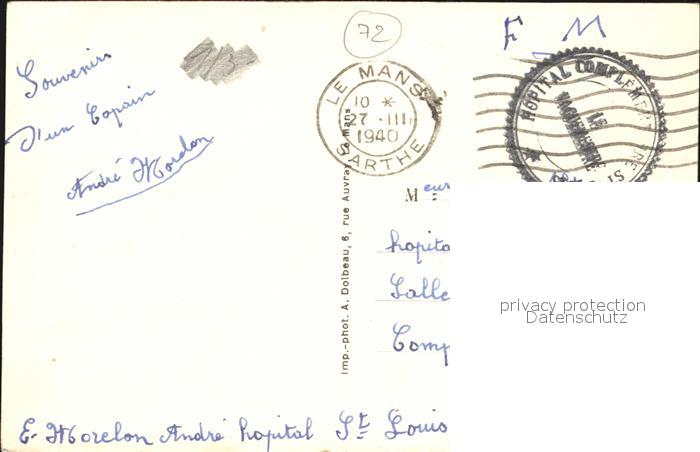 72
F M
Souvenir
d'un Copain
André Morelon
LE MANS
10 *
27 · III
1940
SARTHE
HOPITAL COMPLEMEN
LE
VAGUEMESTRE
Imp.-phot. A. Dolbeau, 6, rue Auvray, Le Mans
Meur
hopita
Salle
Comp
privacy protection
Datenschutz
E. Morelon André hopital St Louis